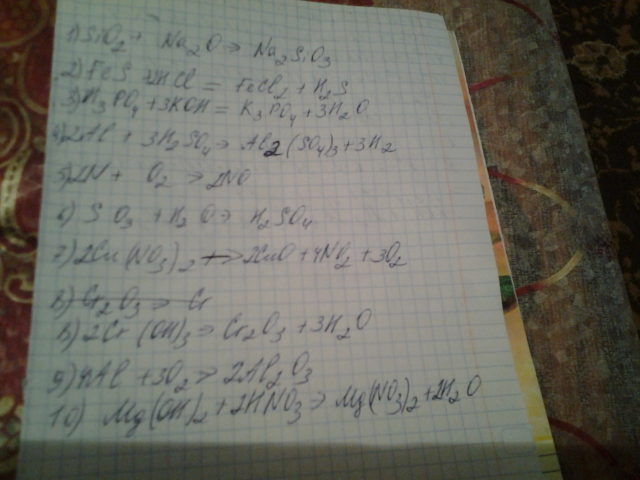 1) SiO2 + Na2O → Na2SiO3
2) FeS 2HCl = FeCl2 + H2S
3) H3PO4 + 3KOH = K3PO4 + 3H2O
4) 2Al + 3H2SO4 → Al2(SO4)3 + 3H2
5) 2N + O2 → 2NO
6) SO3 + H2O → H2SO4
7) 2Cu(NO3)2 → 2CuO + 4NO2 + 3O2
8) Cr2O3 → Cr
8) 2Cr(OH)3 → Cr2O3 + 3H2O
9) 4Al + 3O2 → 2Al2O3
10) Mg(OH)2 + 2HNO3 → Mg(NO3)2 + 2H2O